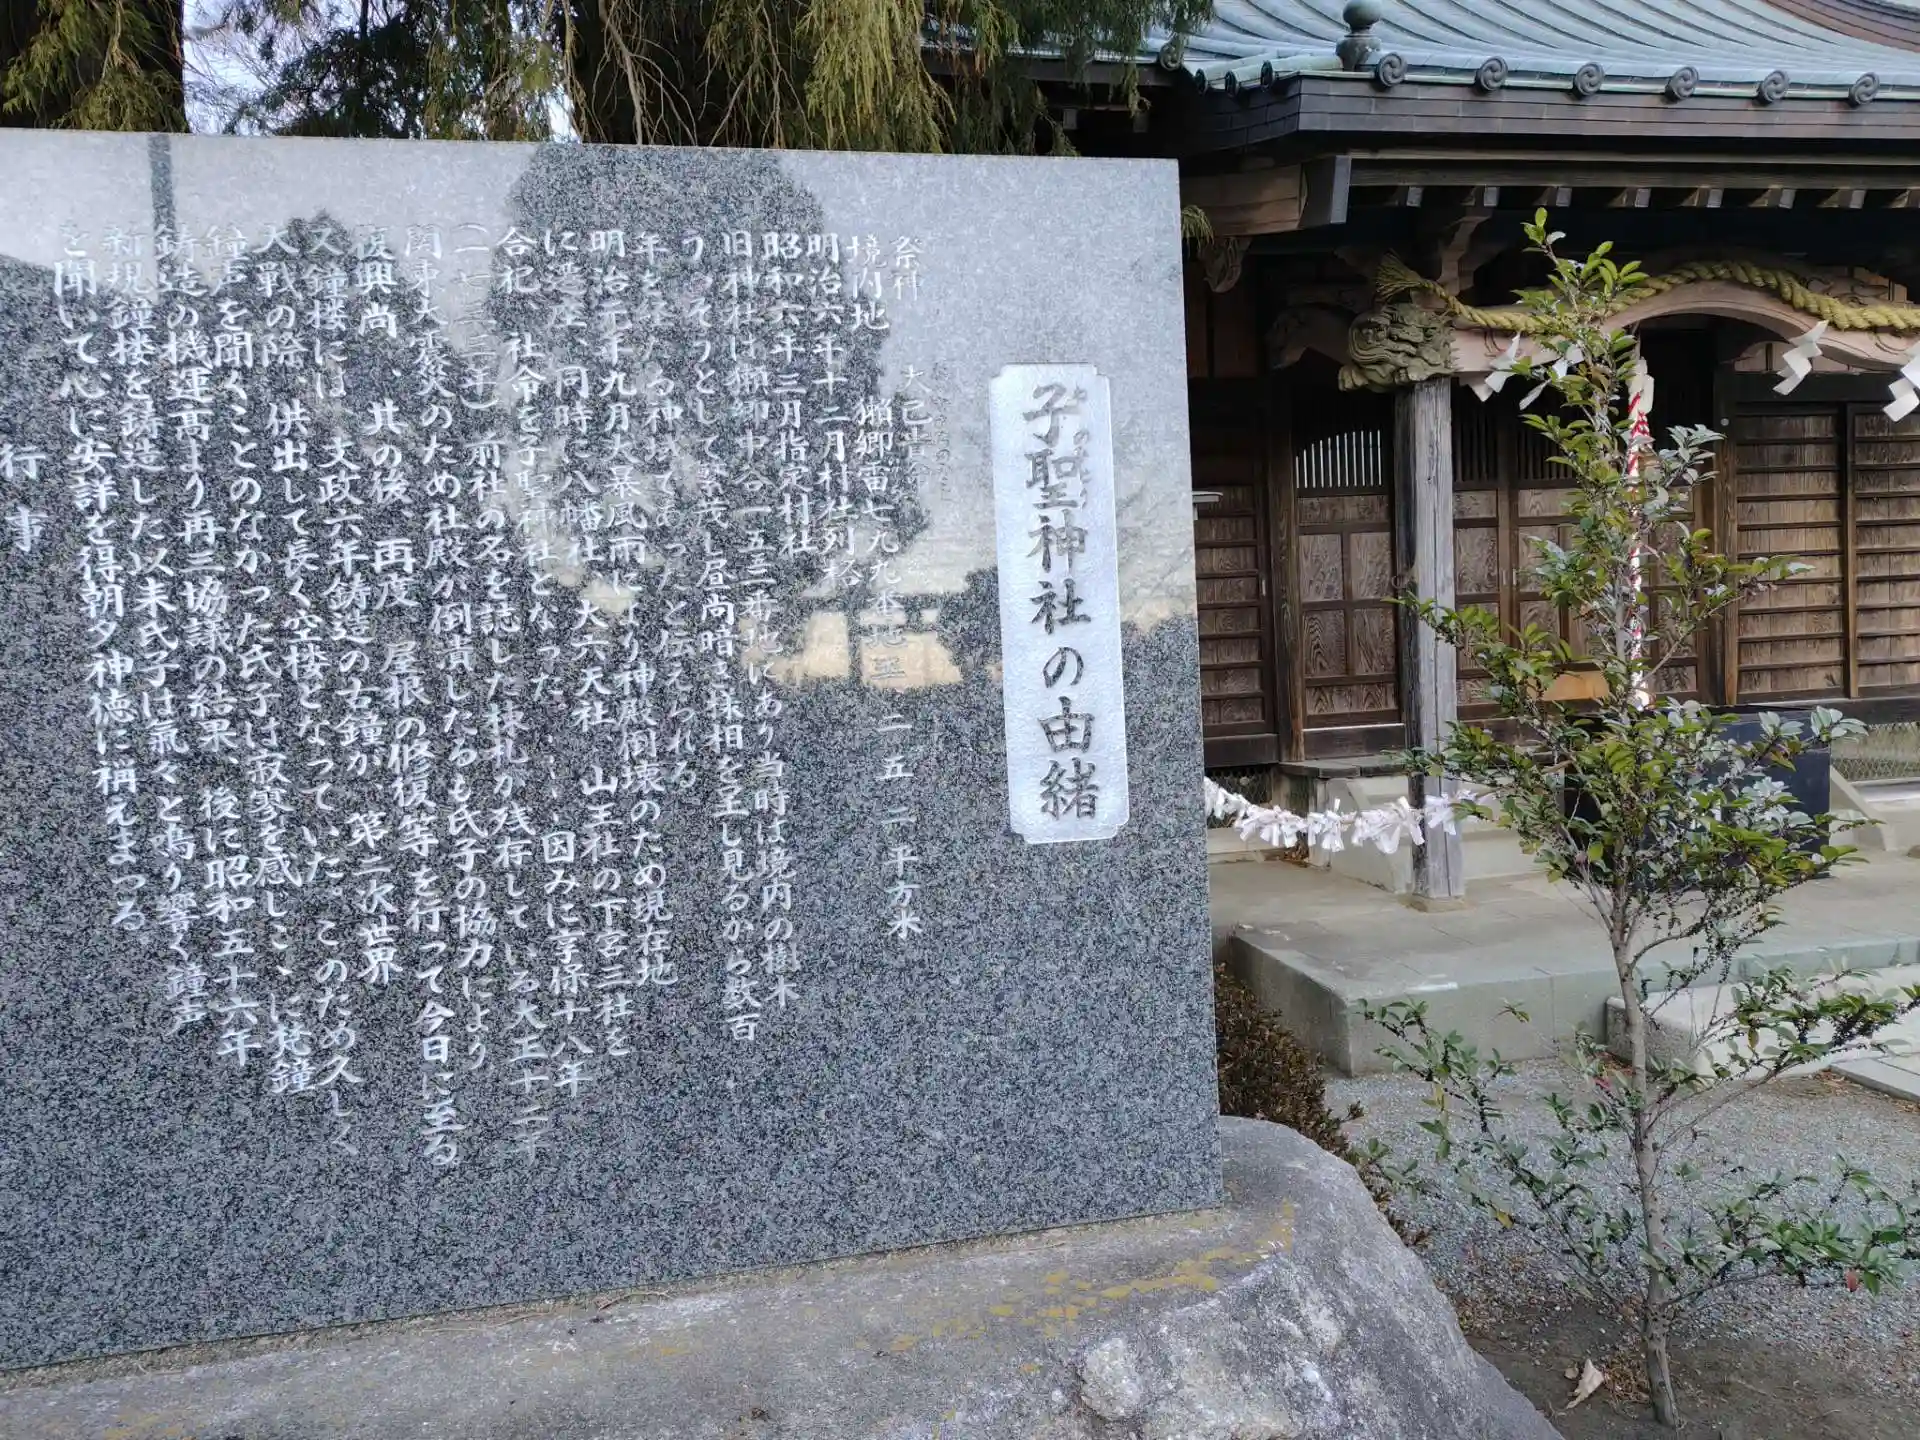 子聖神社の由緒
祭神 大己貴命
境内地 獺郷雷七九九番地 二五二平方米
明治六年十二月村社列格
昭和六年三月指定村社
旧神社は獺郷中谷一五三番地にあり当時は境内の樹木
うっそうとして繁茂し昼尚暗き様相を呈し見るから数百
年を経たる神域であったと伝えられる
明治元年九月大暴風雨により神殿倒壊のため現在地
に遷座、同時に八幡社、大六天社、山王社の下宮三社を
合祀、社命を子聖神社となった……因みに享保十八年
(一七三三年)前社の名を誌した棟札が残存している大正十二年
関東大震災のため社殿が倒潰したるも氏子の協力により
復興尚、其の後、再度、屋根の修復等を行って今日に至る
又鐘楼には、文政六年鋳造の古鐘が、第二次世界
大戦の際、供出して長く空楼となっていた。このため久しく
鐘声を聞くことのなかった氏子は寂寥を感じ、に梵鐘
鋳造の機運高より再三協議の結果、後に昭和五十六年
新規鐘楼を鋳造した以来氏子は氣々と鳴り響く鐘声
を聞いて心に安詳を得朝夕神徳に稱えまつる。
行事